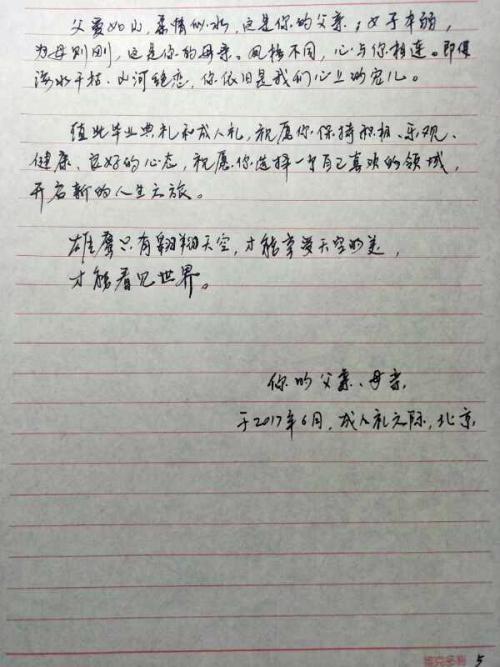 父爱如山,柔情似水,这是你的父亲;女子本弱,
为母则刚,这是你的母亲。风格不同,心与你相连。即使
海水干枯、山河绝恋,你依旧是我们心上的宠儿。
值此毕业典礼和成人礼,祝愿你保持积极、乐观、
健康、良好的心态,祝愿你选择一个自己喜欢的领域,
开启新的人生之旅。
雄鹰只有翱翔天空,才能享受天空的美,
才能看见世界。
你的父亲、母亲,
于2017年6月,成人礼之际,北京,
5